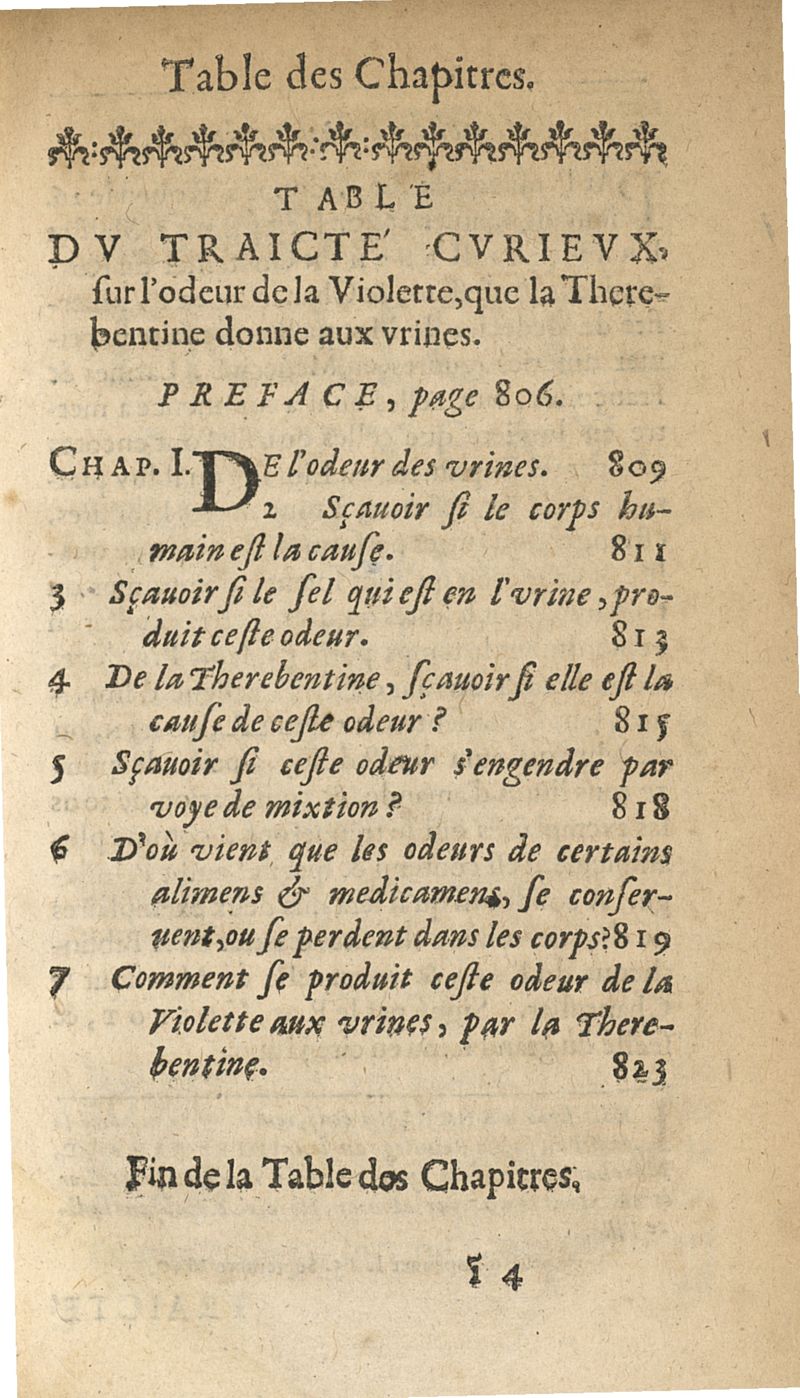 Table des Chapitres.
TABLE
DV TRAICTE' CVRIEVX,
sur l'odeur de la Violette, que la There-
bentine donne aux vrines.
PREFACE, page 806.
CHAP. I. DE l'odeur des vrines. 809
2 Sçauoir si le corps hu-
main est la cause. 811
3 Sçauoir si le sel qui est en l'vrine, pro-
duit ceste odeur. 813
4 De la Therebentine, sçauoir si elle est la
cause de ceste odeur ? 815
5 Sçauoir si ceste odeur s'engendre par
voye de mixtion ? 818
6 D'où vient que les odeurs de certains
alimens & medicamens, se conser-
uent, ou se perdent dans les corps? 819
7 Comment se produit ceste odeur de la
Violette aux vrines, par la There-
bentine. 823
Fin de la Table des Chapitres.
4